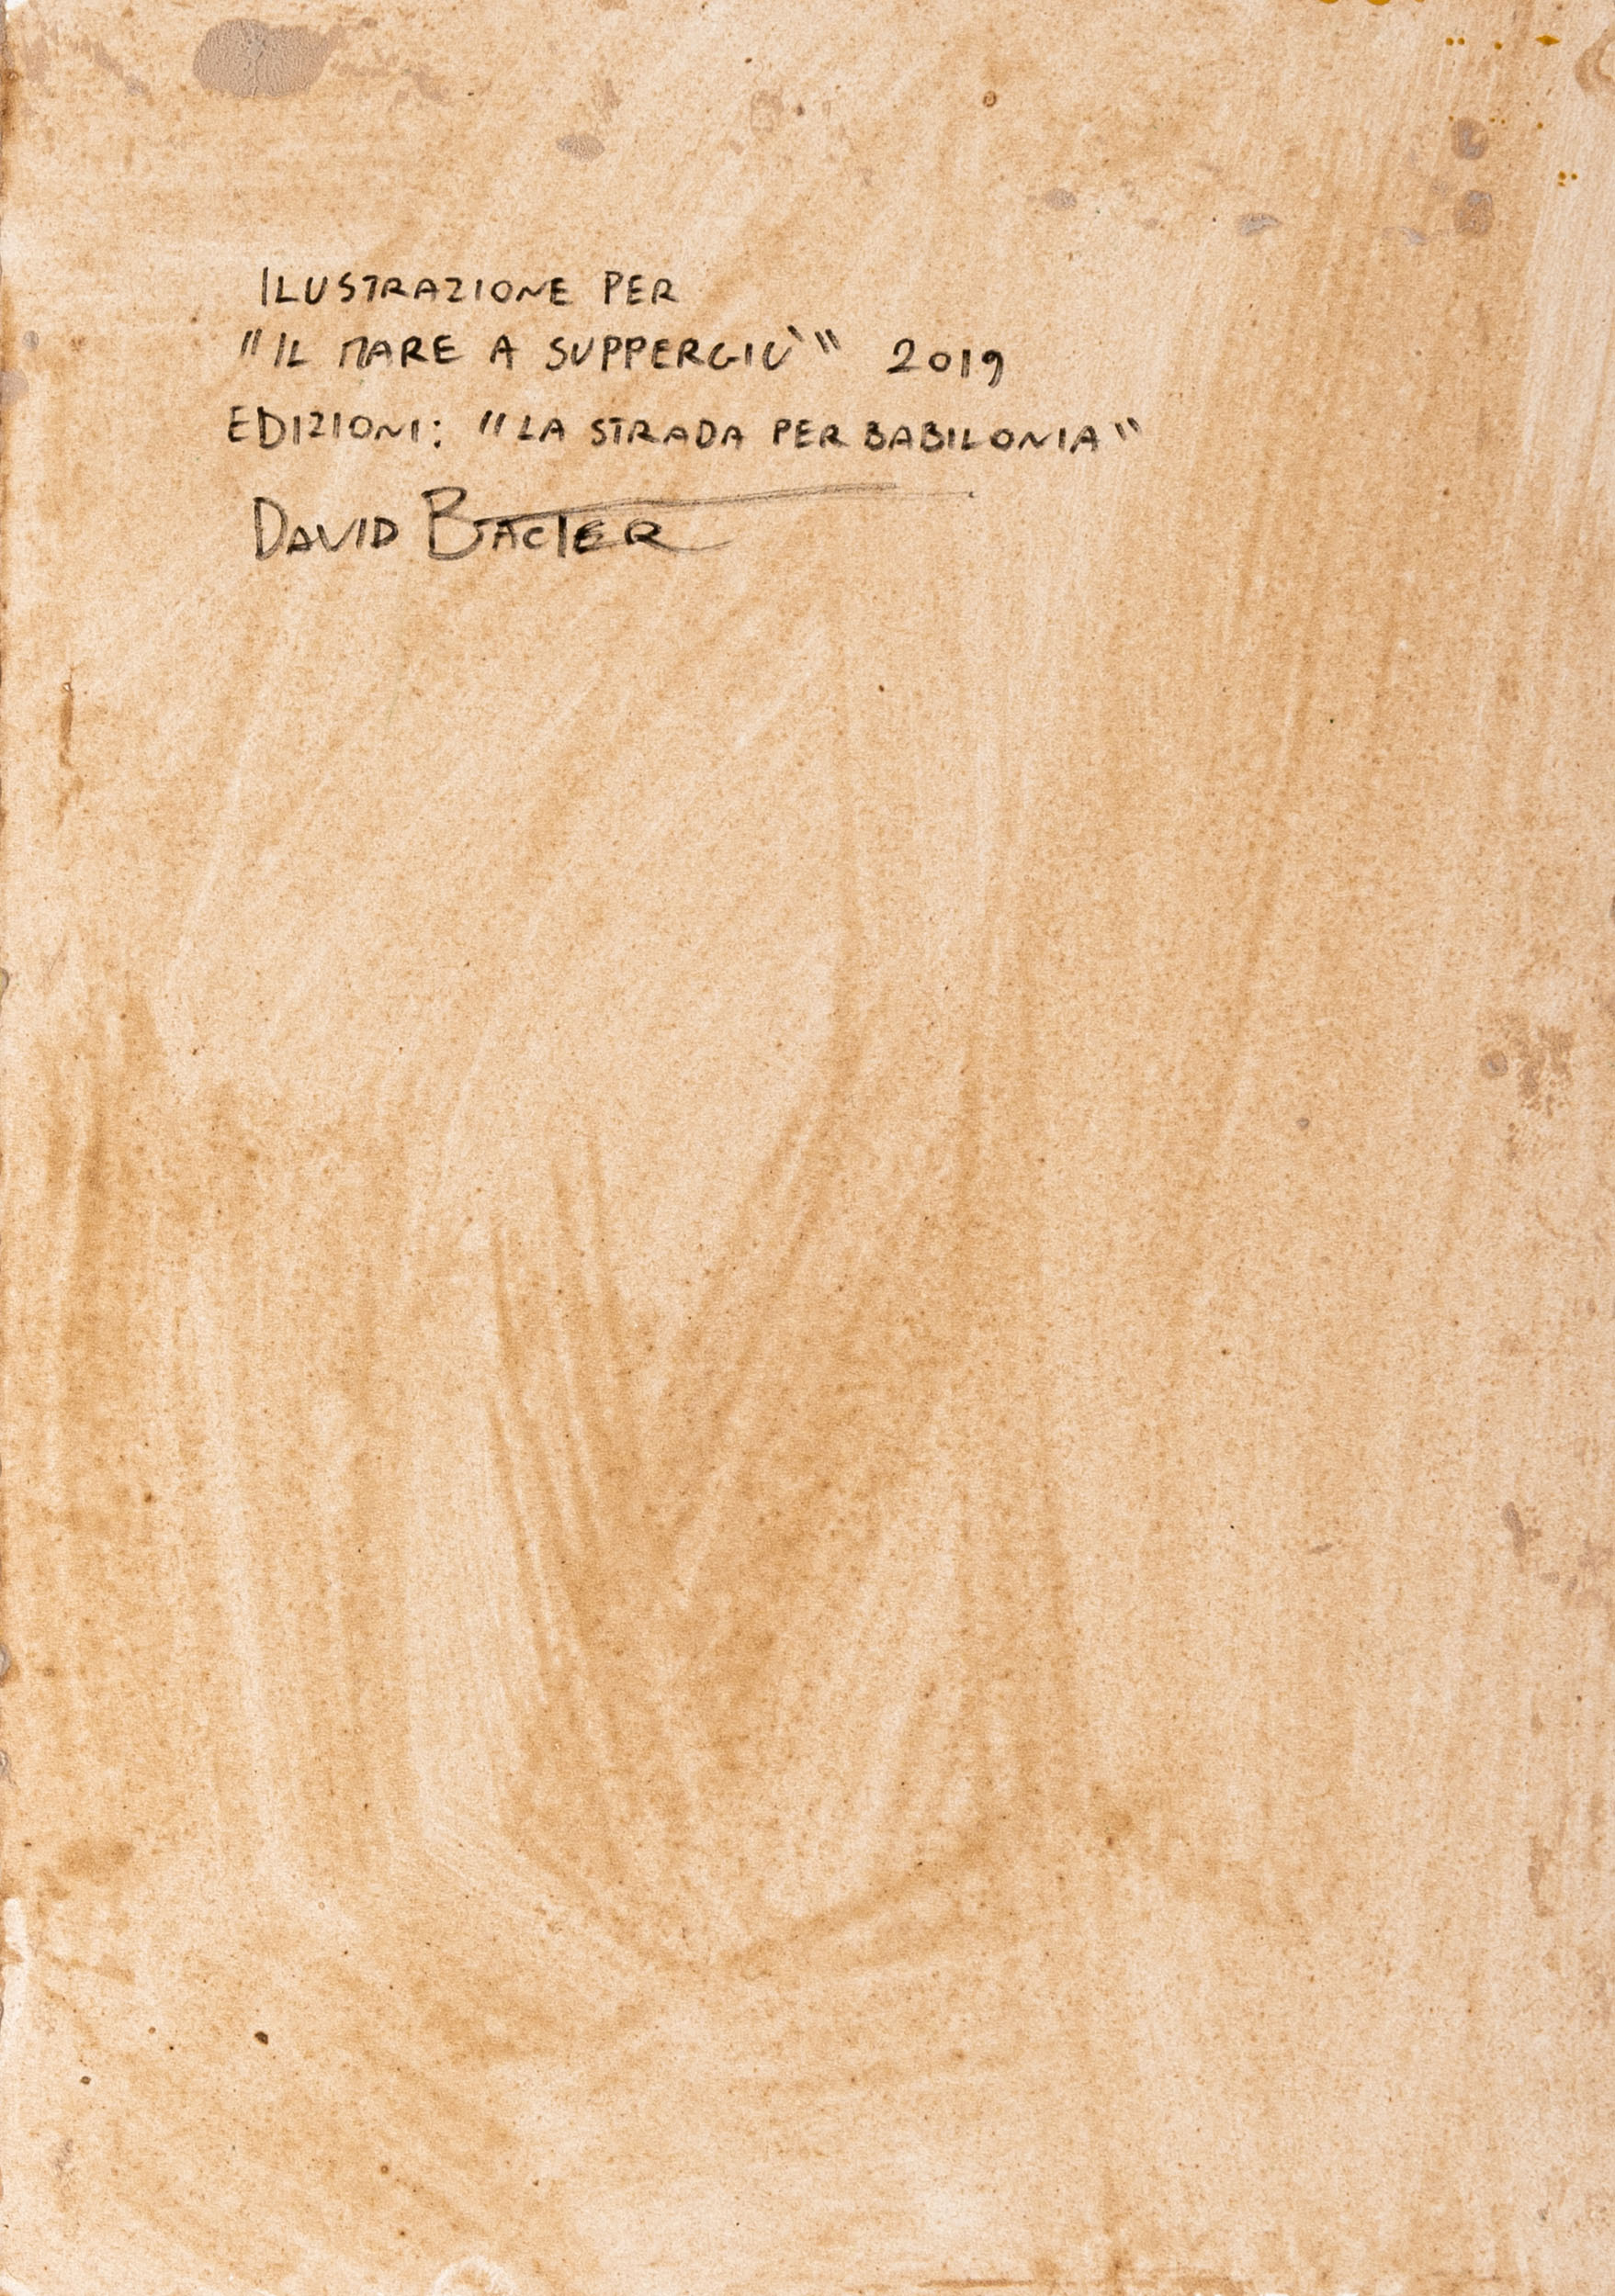 ILUSTRAZIONE PER
"IL MARE A SUPPERGIÙ" 2019
EDIZIONI: "LA STRADA PER BABILONIA"
DAVID BACTER